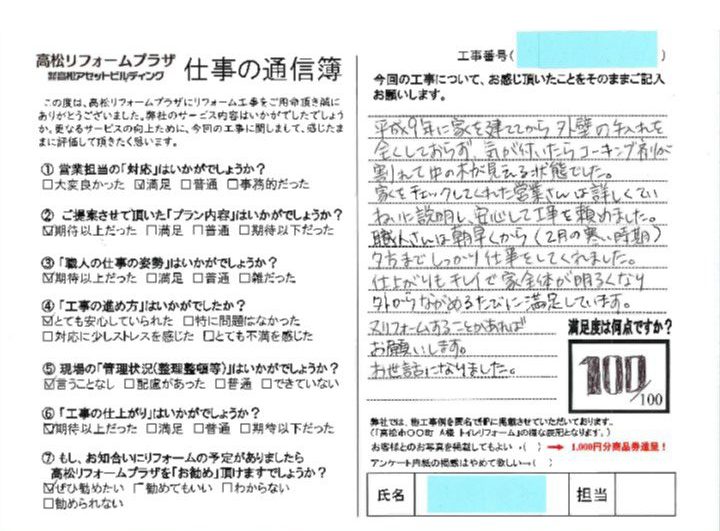 高松リフォームプラザ
㈱高松アセットビルディング
仕事の通信簿
この度は、高松リフォームプラザにリフォーム工事をご用命頂き誠に
ありがとうございました。弊社のサービス内容はいかがでしたでしょう
か。更なるサービスの向上ために、今回の工事に関しまして、感じたま
まに評価して頂きたく思います。
① 営業担当の「対応」はいかがでしょうか？
□大変良かった ☑満足 □普通 □事務的だった
② ご提案させて頂いた「プラン内容」はいかがでしょうか？
☑期待以上だった □満足 □普通 □期待以下だった
③ 「職人の仕事の姿勢」はいかがでしょうか？
☑期待以上だった □満足 □普通 □雑だった
④ 「工事の進め方」はいかがでしたか？
☑とても安心していられた □特に問題はなかった
□対応に少しストレスを感じた □とても不満を感じた
⑤ 現場の「管理状況(整理整頓等)」はいかがでしょうか？
☑言うことなし □配慮があった □普通 □できていない
⑥ 「工事の仕上がり」はいかがでしょうか？
☑期待以上だった □満足 □普通 □期待以下だった
⑦ もし、お知合いにリフォームの予定がありましたら
高松リフォームプラザを「お勧め」頂けますでしょうか？
☑ぜひ勧めたい □勧めてもいい □わからない
□勧められない
工事番号( )
今回の工事について、お感じ頂いたことをそのままご記入
お願いします。
平成9年に家を建ててから 外壁の手入れを
全くしておらず 気が付いたらコーキング剤が
割れて中の木が見える状態でした。
家をチェックしてくれた営業さんは詳しくてい
ねいに説明し、安心して工事を頼めました。
職人さんは朝早くから（2月の寒い時期）
夕方までしっかり仕事をしてくれました。
仕上がりもキレイで家全体が明るくなり
外からながめるたびに満足しています。
又リフォームすることがあれば
お願いします。
お世話になりました。
満足度は何点ですか？
100/100
弊社では、施工事例を匿名でHPに掲載させていただいております。
(「高松市〇〇町 A様 トイレリフォーム」の様な表記となります。)
お客様とのお写真を掲載してもよい ・( ) → 1,000円分商品券進呈！
アンケート用紙の掲載はやめて欲しい→( )
氏名
担当